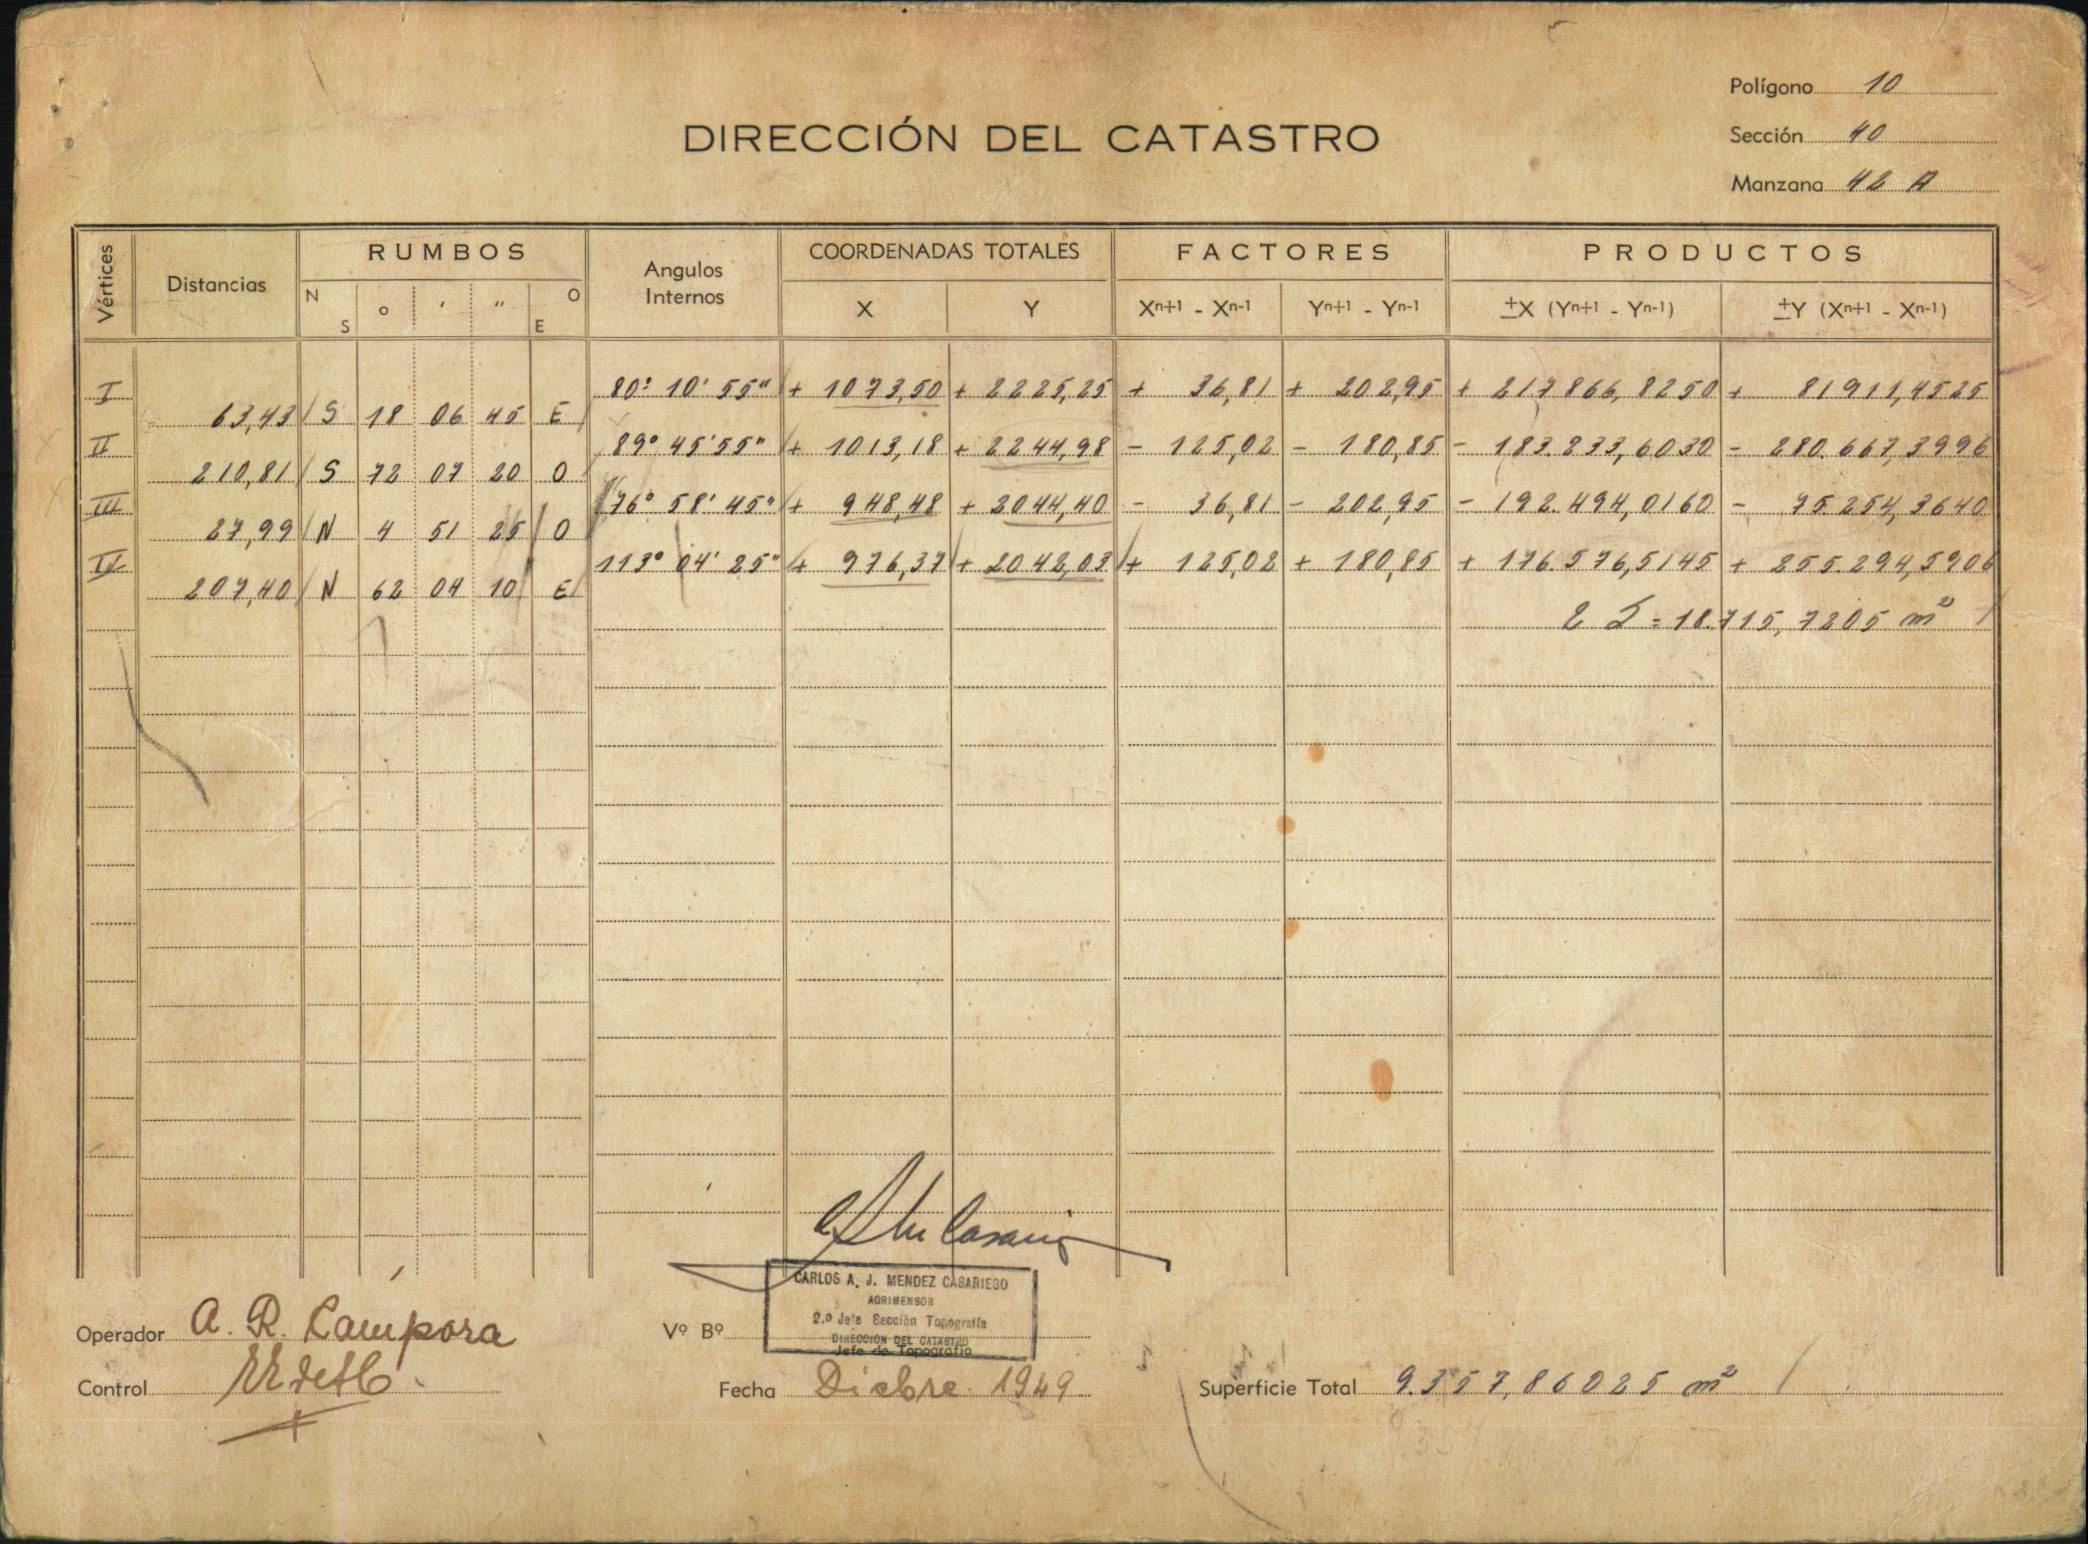 Polígono 10
Sección 40
Manzana 42 A
DIRECCIÓN DEL CATASTRO
Vértices Distancias RUMBOS Angulos Internos COORDENADAS TOTALES FACTORES PRODUCTOS
N S ° ' " O E X Y Xn+1 - Xn-1 Yn+1 - Yn-1 ±X (Yn+1 - Yn-1) ±Y (Xn+1 - Xn-1)
I 80° 10' 55" + 1073,50 + 2225,25 + 36,81 + 202,95 + 217866,8250 + 81911,4525
63,43 S 18 06 45 E
II 89° 45' 55" + 1013,18 + 2244,98 - 125,02 - 180,85 - 183.233,6030 - 280.667,3996
210,81 S 72 07 20 O
III 76° 58' 45" + 948,48 + 2044,40 - 36,81 - 202,95 - 192.494,0160 - 75.254,3640
27,99 N 4 51 25 O
IV 113° 04' 25" + 976,37 + 2042,03 + 125,02 + 180,85 + 176.576,5145 + 255.294,5906
207,40 N 62 04 10 E
2 S = 18.715,7205 m²
CARLOS A. J. MENDEZ CASARIEGO
AGRIMENSOR
2.º Jefe Sección Topografía
DIRECCION DEL CATASTRO
Jefe de Topografía
Operador A. R. Campora
Vº Bº
Control
Fecha Dicbre. 1949
Superficie Total 9.357,86025 m²